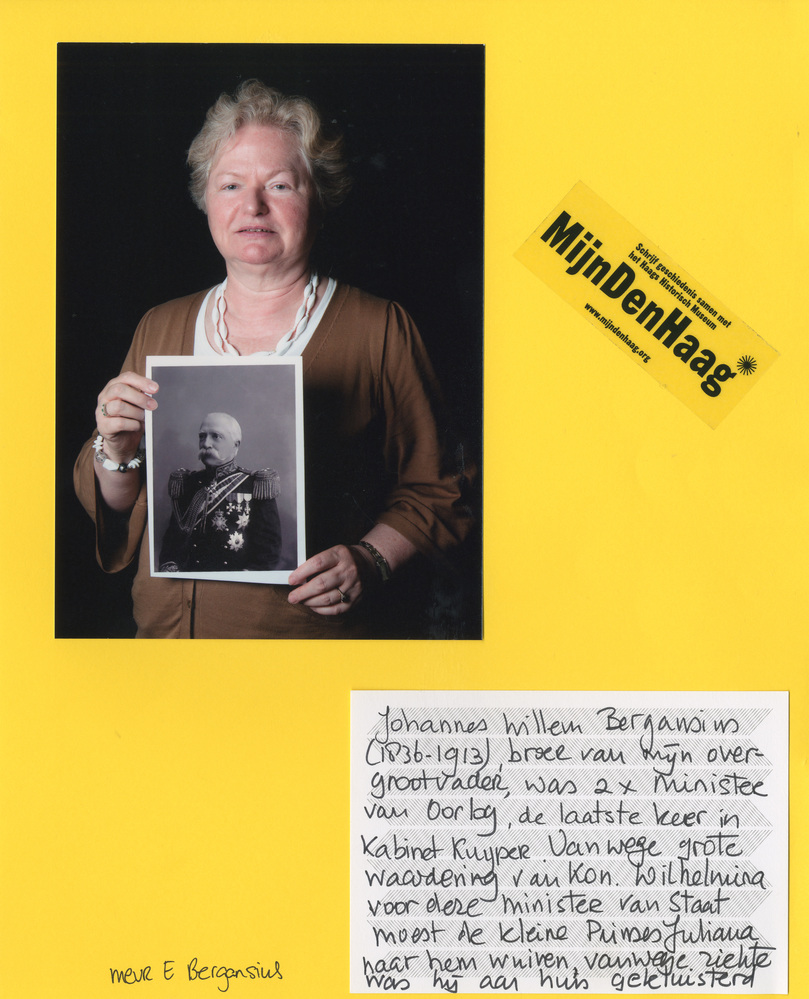 Schrijf geschiedenis samen met
het Haags Historisch Museum
MijnDenHaag*
www.mijndenhaag.org
Johannes Willem Bergansius
(1836-1913), broer van mijn over-
grootvader, was 2x Minister
van Oorlog, de laatste keer in
Kabinet Kuyper. Vanwege grote
waardering van Kon. Wilhelmina
voor deze minister van Staat
moest de kleine Prinses Juliana
naar hem wuiven, vanwege ziekte
was hij aan huis gekluisterd
mevr E Bergansius